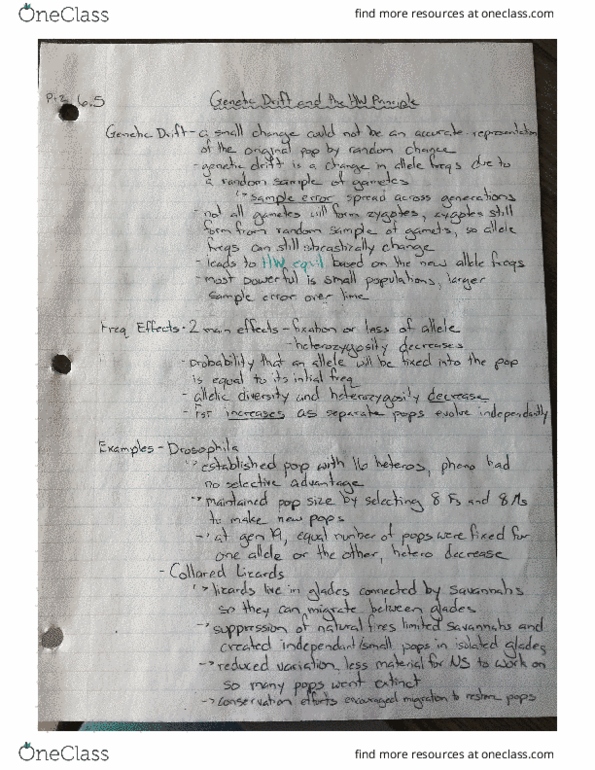 OneClass
find more resources at oneclass.com
Pr2 6.5
Genetic Drift and the HW Principle
Genetic Drift - a small change could not be an accurate representation
of the original pop by random chance
- genetic drift is a change in allele freqs due to
a random sample of gametes
↳ sample error spread across generations
- not all gametes will form zygotes, zygotes still
form from random sample of gamets, so allele
freqs can still change
- leads to HW equil based on the new allele freqs
- most powerful is small populations, larger
sample error over time
Freq Effects - 2 main effects - fixation or loss of allele
- heterozygosity decreases
- probability that an allele will be fixed into the pop
is equal to its intial freq
- allelic diversity and heterozygosity decrease
- FST increases as separate pops evolve independantly
Examples - Drosophila
↳ established pop with 16 heteros, pheno had
no selective advantage
↳ maintained pop size by selecting 8 Fs and 8 Ms
to make new pops
↳ at gen 19, equal number of pops were fixed for
one allele or the other, hetero decrease
- Collared Lizards
↳ lizards live in glades connected by savannahs
so they can migrate between glades
↳ suppression of natural fires limited savannahs and
created independant/small pops in isolated glades
↳ reduced variation, less material for NS to work on
so many pops went extinct
↳ conservation efforts encouraged migration to restore pops
OneClass
find more resources at oneclass.com